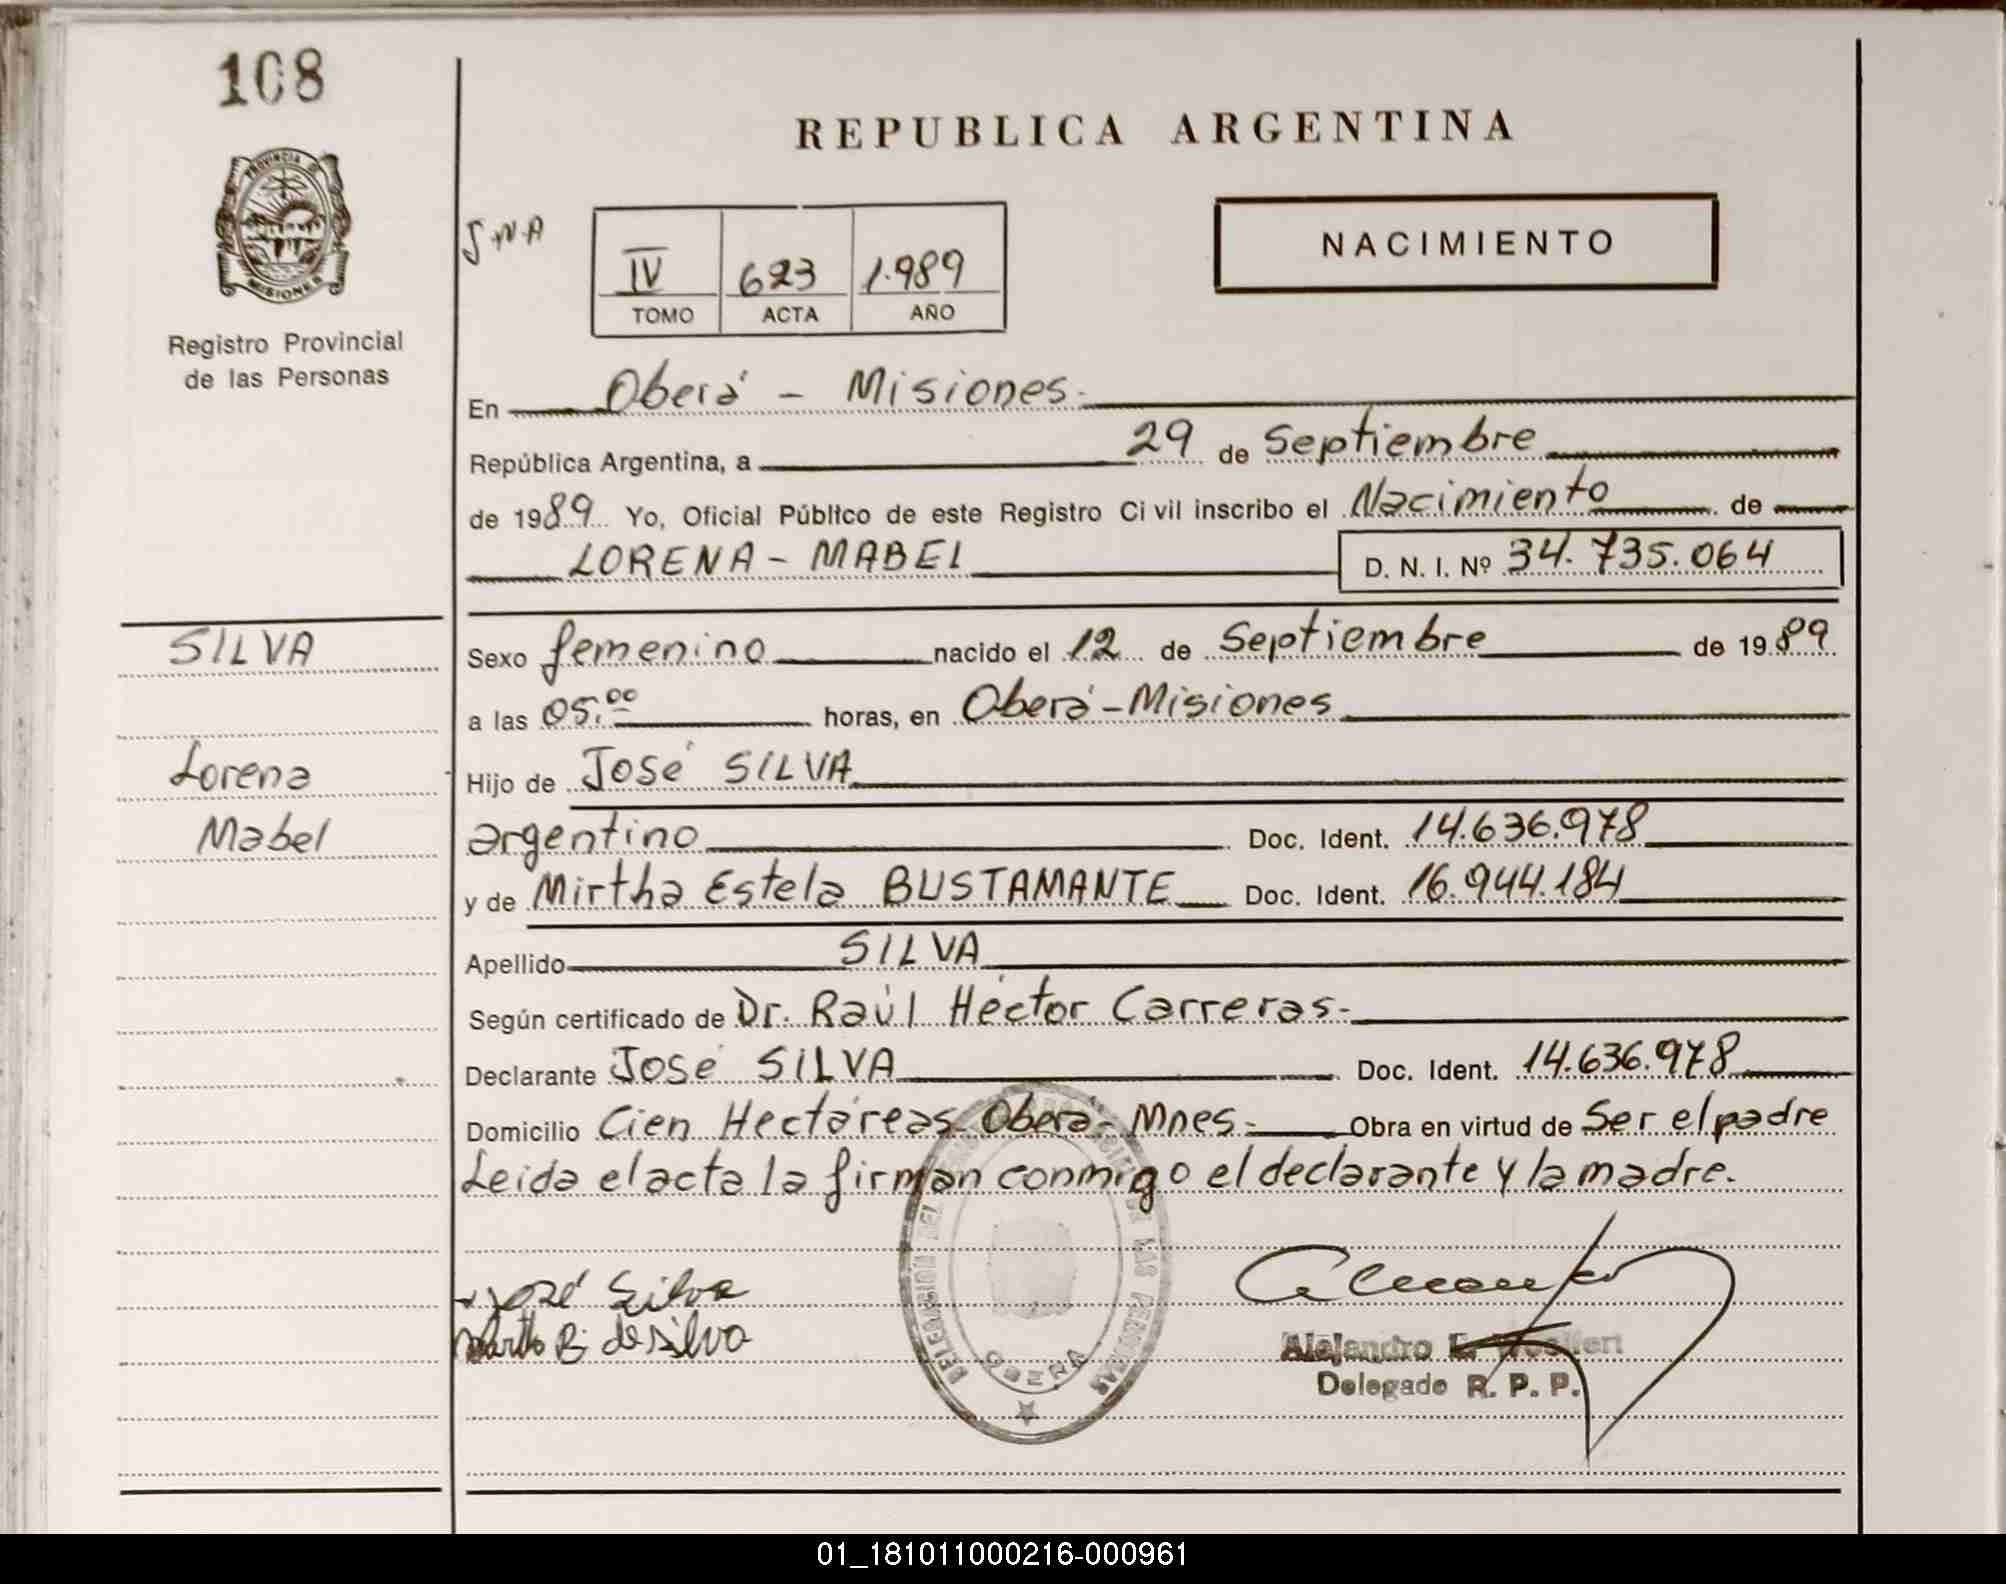 108
PROVINCIA DE
MISIONES
Registro Provincial
de las Personas
REPUBLICA ARGENTINA
NACIMIENTO
IV 623 1.989
TOMO ACTA AÑO
En Oberá - Misiones.
República Argentina, a 29 de Septiembre
de 1989 Yo, Oficial Público de este Registro Civil inscribo el Nacimiento de
LORENA - MABEL D. N. I. Nº 34.735.064
SILVA
Lorena
Mabel
Sexo femenino nacido el 12 de Septiembre de 1989
a las 05.00 horas, en Oberá - Misiones
Hijo de José SILVA
argentino Doc. Ident. 14.636.978
y de Mirtha Estela BUSTAMANTE Doc. Ident. 16.944.184
Apellido SILVA
Según certificado de Dr. Raúl Héctor Carreras.-
Declarante José SILVA Doc. Ident. 14.636.978
Domicilio Cien Hectáreas Oberá - Mnes.- Obra en virtud de Ser el padre
Leida el acta la firman conmigo el declarante y la madre.
José Silva
B. de Silva
OBERA
Alejandro E.
Delegado R. P. P.
01_181011000216-000961